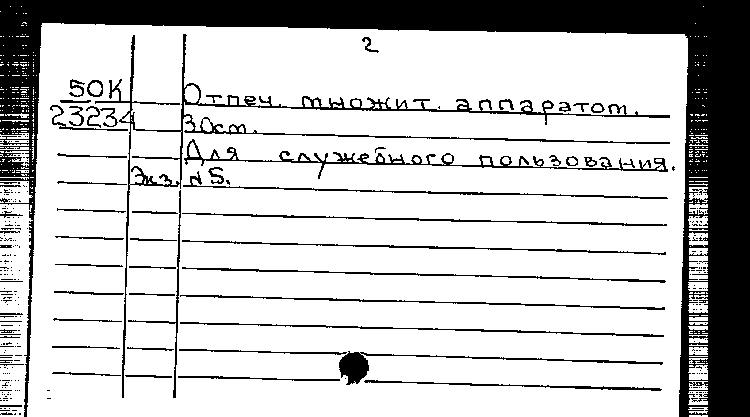 2
50К Отпеч. множит. аппаратом.
23234 30см.
Для служебного пользования.
Экз. N5.